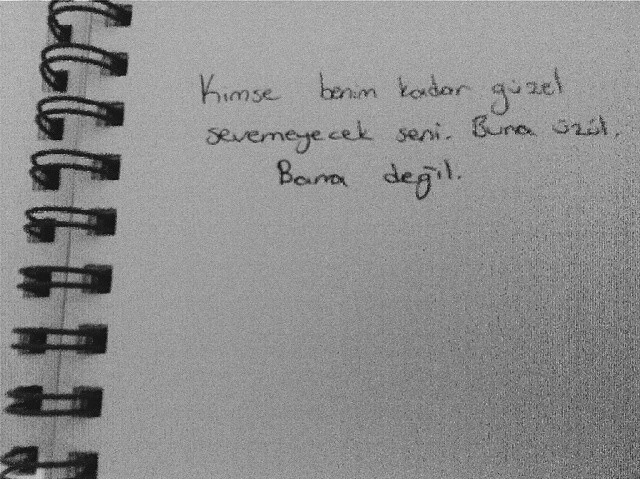 Kimse benim kadar güzel
sevemeyecek seni. Buna üzül.
Bana değil.